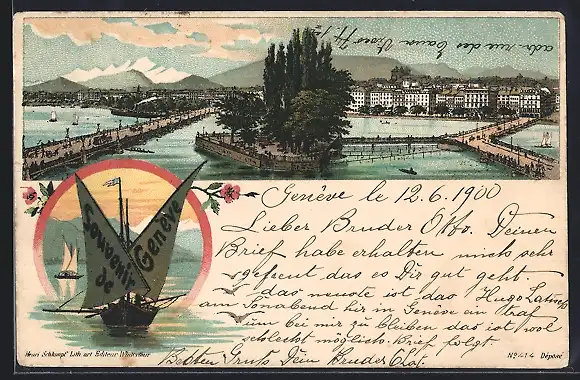 adr. rue des Eaux Vives 74 I
Souvenir
de
Genève
Genève le 12.6.1900
Lieber Bruder Otto. Deinen
Brief habe erhalten mich sehr
gefreut das es Dir gut geht.
das neueste ist das Hugo
am Sonabend hir in Geneve ein traf
um bei mir zu bleiben das ist wol
schlecht möglich. Brief folgt.
Besten Gruß Dein Bruder
Henri Schlumpf Lith. art Editeur Winterthur
No 414 Déposé